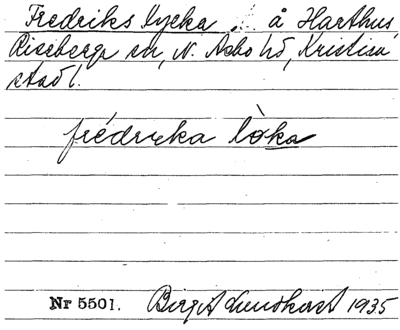 Fredriks lycka å Harthus
Riseberga sn, N. Åsbo hd, Kristian
stad l.
frédryka lòka
Nr 5501. Birgit Lundkvist 1935